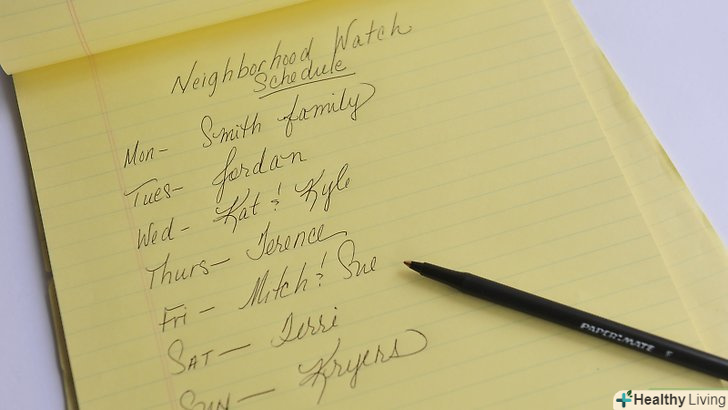 Neighborhood Watch
Schedule
Mon- Smith family
Tues- Jordan
Wed- Kat & Kyle
Thurs- Terence
Fri- Mitch & Sue
SAT- Terri
SUN- Kryers
PAPER:MATE
Healthy Living